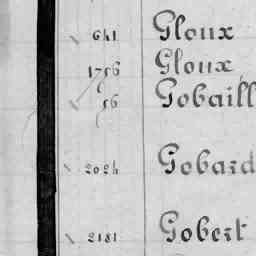 641 Gloux
1756 Gloux,
56 Gobaill
2024 Gobard
2181 Gobert